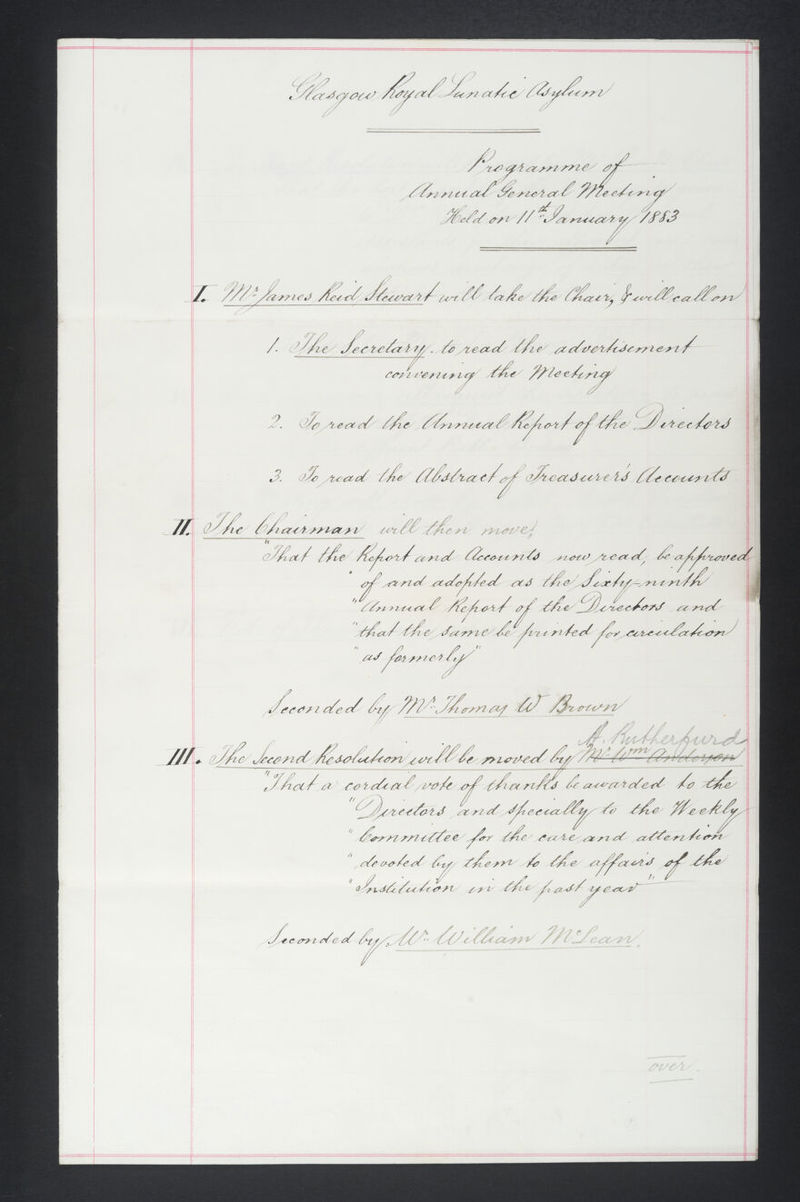 Glasgow Royal Lunatic Asylum
Programme of
Annual General Meeting
Held on 11th January 1883
I. Mr James Reid Stewart will take the Chair, & will call on
1. The Secretary to read the advertisement
convening the Meeting
2. To read the Annual Report of the Directors
3. To read the Abstract of Treasurer's Accounts
II. The Chairman will then move,
"That the Report and Accounts now read, be approved
" of and adopted as the Sixty=ninth
" Annual Report of the Directors and
" that the same be printed for circulation
" as formerly"
Seconded by Mr Thomas W Brown
A. Rutherfurd
III. The Second Resolution will be moved by Mr Wm Anderson
"That a cordial vote of thanks be awarded to the
" Directors and specially to the Weekly
" Committee for the care and attention
" devoted by them to the affairs of the
" Institution in the past year"
Seconded by Mr William McLean.
over.